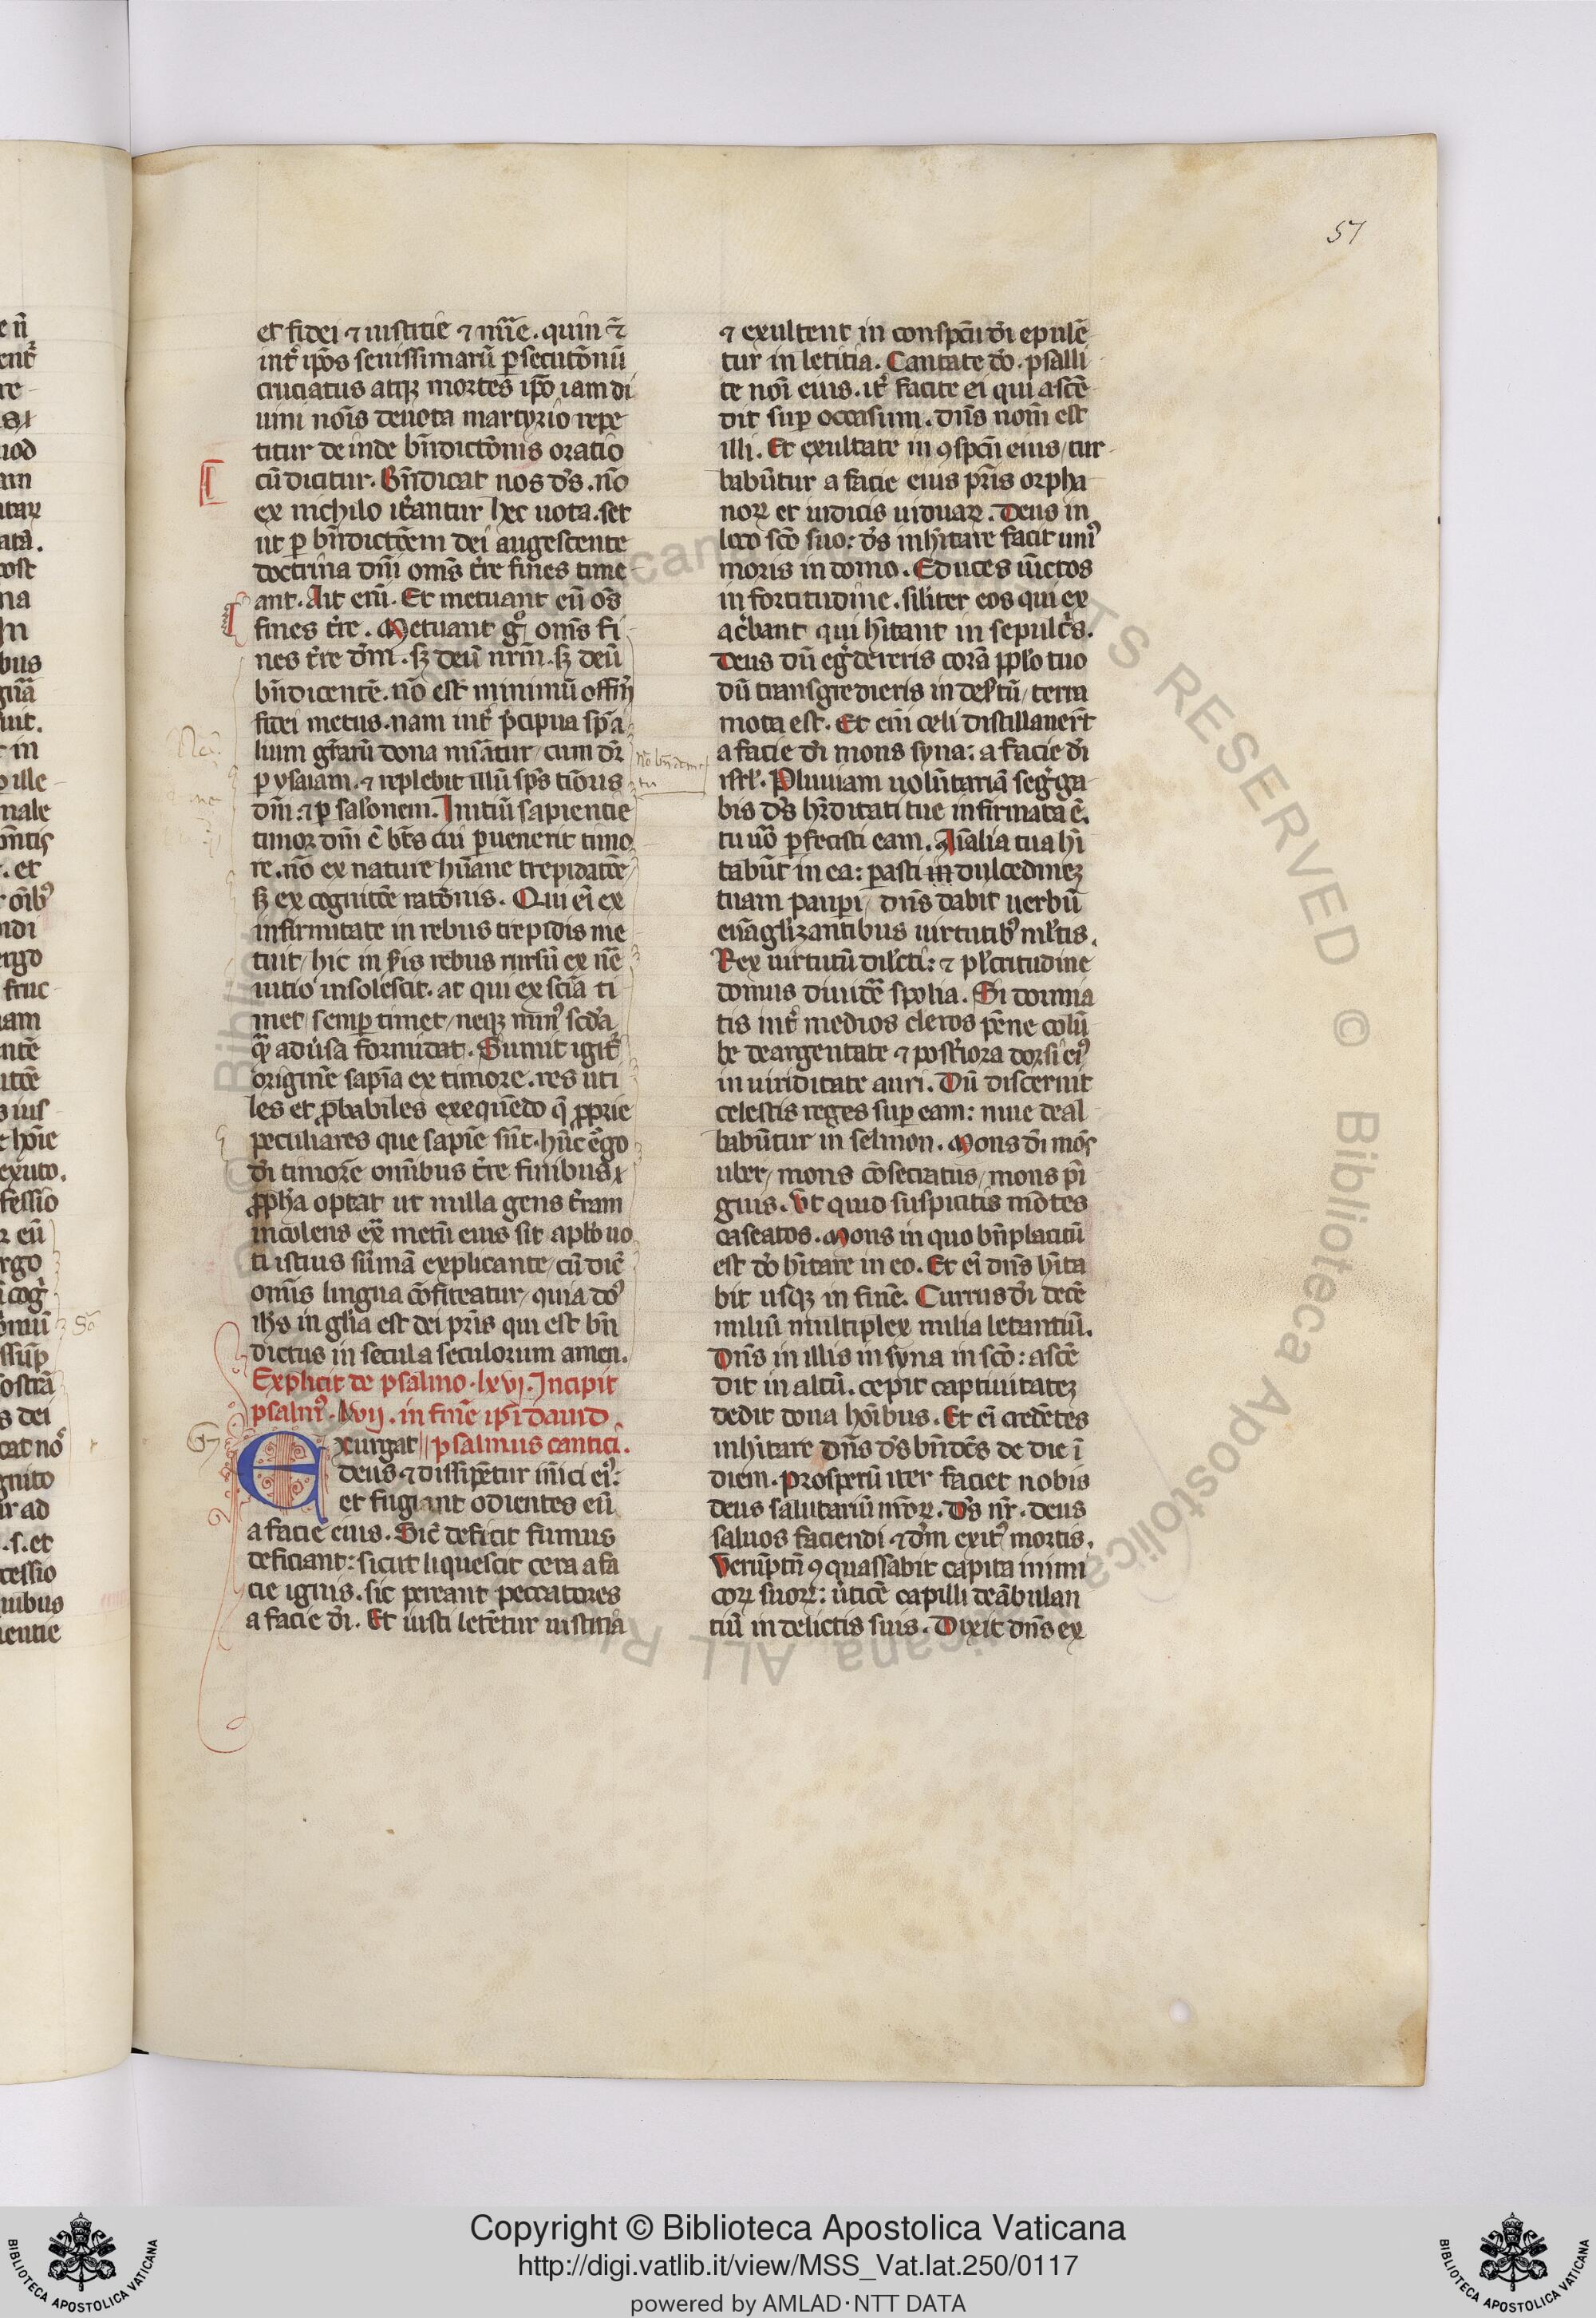 57
et fidei ⁊ iustitie ⁊ uite. quin ⁊
int̉ ip̄os seuissimarū ꝑsecutōnū
cruciatus atqꝫ mortes ip̄o iam di
uini nōis deuota martyrio repe
titur deinde bn̄dictōnis oratio
cū dicitur. Bn̄dicat nos d̄s. nō
ex nichilo it̉antur hec uota. set
ut ꝑ bn̄dictōem dei augescente
doctrina dn̄i om̄s t̉re fines time
ant. Ait eni. Et metuant eū om̄s
fines t̉re. Metuant gͦ om̄s fi
nes t̉re dm̄. sꝫ deū nrm̄. sꝫ deū
bn̄dicentē. nō est minimū offm̄
fidei metus. nam int̉ p̄cipua sp̄a
lium gr̄arū dona mr̄atur cum dr̄
ꝑ ysaiam. ⁊ replebit illū sp̄s tiōris
dn̄i. ⁊ ꝑ salōnem. Initiū sapientie
timor dn̄i ē bt̄s cui ꝑuenerit timo
re. nō ex nature hūane trepidatōe
sꝫ ex cognitōe ratōnis. Qui ei ex
infirmitate in rebus trepidis me
tuit hic in p̄is rebus rursū ex nr̄e
uitio insolescit. at qui ex scīa ti
met semꝑ timet neqꝫ min᷒ scd̄a
qͣ adūsa formidat. Sumit igit̉
originē sapīa ex timore. res uti
les et ꝓbabiles exequēdo q̄ ꝓprie
peculiares que sapīe sūt. hūc ēgo
dī timorē omībus t̉re finibus
ꝓph̄a optat ut nulla gens t̉ram
incolens ext̉ metū eius sit aplō uo
ti istius sūmā explicante cū dic̄
omīs lingua cōfiteatur quia do᷒
ih̄s in gl̄ia est dei pr̄is qui est bn̄
dictus in secula seculorum amen.
Explicit de psalmo . lxvi. Incipit
psalm᷒ . lxvij . in finē ip̄i dauid .
Exurgat psalmus cantici.
deus ⁊ dissipētur inīci ei᷒:
et fugiant odientes eū
a facie eius. Sic̄ deficit fumus
deficiant: sicut liquescit cera a fa
cie ignis. sic pereant peccatores
a facie dī. Et iusti letētur iustitia
⁊ exultent in conspc̄tu dī epulē
tur in letitia. Cantate dō. psalli
te nōi eius. it̉ facite ei qui ascē
dit suꝑ occasum. dn̄s nom̄ est
illi. Et exultate in ꝯspc̄tu eius tur
babūtur a facie eius pr̄is orpha
noꝝ et iudicis uiduaꝝ. Deus in
loco scō suo: d̄s inh̄itare facit uni᷒
moris in domo. Educes uīctos
in fortitudine. silīter eos qui ex
ac̄bant qui h̄itant in sepulc̄s.
Deus dū eg̉dereris corā ꝓplo tuo
dū transgredieris in des̄tū terra
mota est. Et eni celi distillauer̄t
a facie dī mons syna: a facie dī
isrl̄. Pluuiam uolūtariā seg̉ga
bis d̄s hr̄ditati tue infirmata ē.
tu uō ꝑfecisti eam. Aīalia tua hī
tabūt in ea: parasti in dulcedineꝫ
tuam pauꝑi dn̄s dabit uerbū
euāgl̄izantibus uirtutib᷒ ml̄tis.
Rex uirtutū dilc̄ti: ⁊ pl̄critudine
domus diuidē spolia. Si dormia
tis int̉ medios cleros pēne colū
be deargentate ⁊ post̉iora dorsi ei᷒
in uiriditate auri. Dū discernit
celestis reges suꝑ eam: niue deal
babūtur in selmon. Mons dī mōs
uber mons cōsecratus mons pī
guis. Vt quid suspicitis mōtes
caseatos. Mons in quo bn̄placitū
est dō h̄itare in eo. Et ei dn̄s h̄ita
bit usqꝫ in finē. Currus dī decē
miliū multiplex milia letantiū.
Dn̄s in illis in syna in scō: ascē
dit in altū. cepit captiuitateꝫ
dedit dona hoībus. Et ei credētes
inh̄itare dn̄s d̄s bn̄dc̄s de die ī
diem. Prosperū iter faciet nobis
deus salutariū nr̄oꝝ. D̄s nr̄. deus
saluos faciendi ⁊ dn̄i exit᷒ mortis.
Verūptn̄ ꝯquassabit capita inimi
coꝝ suoꝝ: ūticē capilli deābulan
tiū in delictis suis. Dixit dn̄s ex
Copyright © Biblioteca Apostolica Vaticana
http://digi.vatlib.it/view/MSS_Vat.lat.250/0117
powered by AMLAD·NTT DATA
BIBLIOTECA APOSTOLICA VATICANA
BIBLIOTECA APOSTOLICA VATICANA